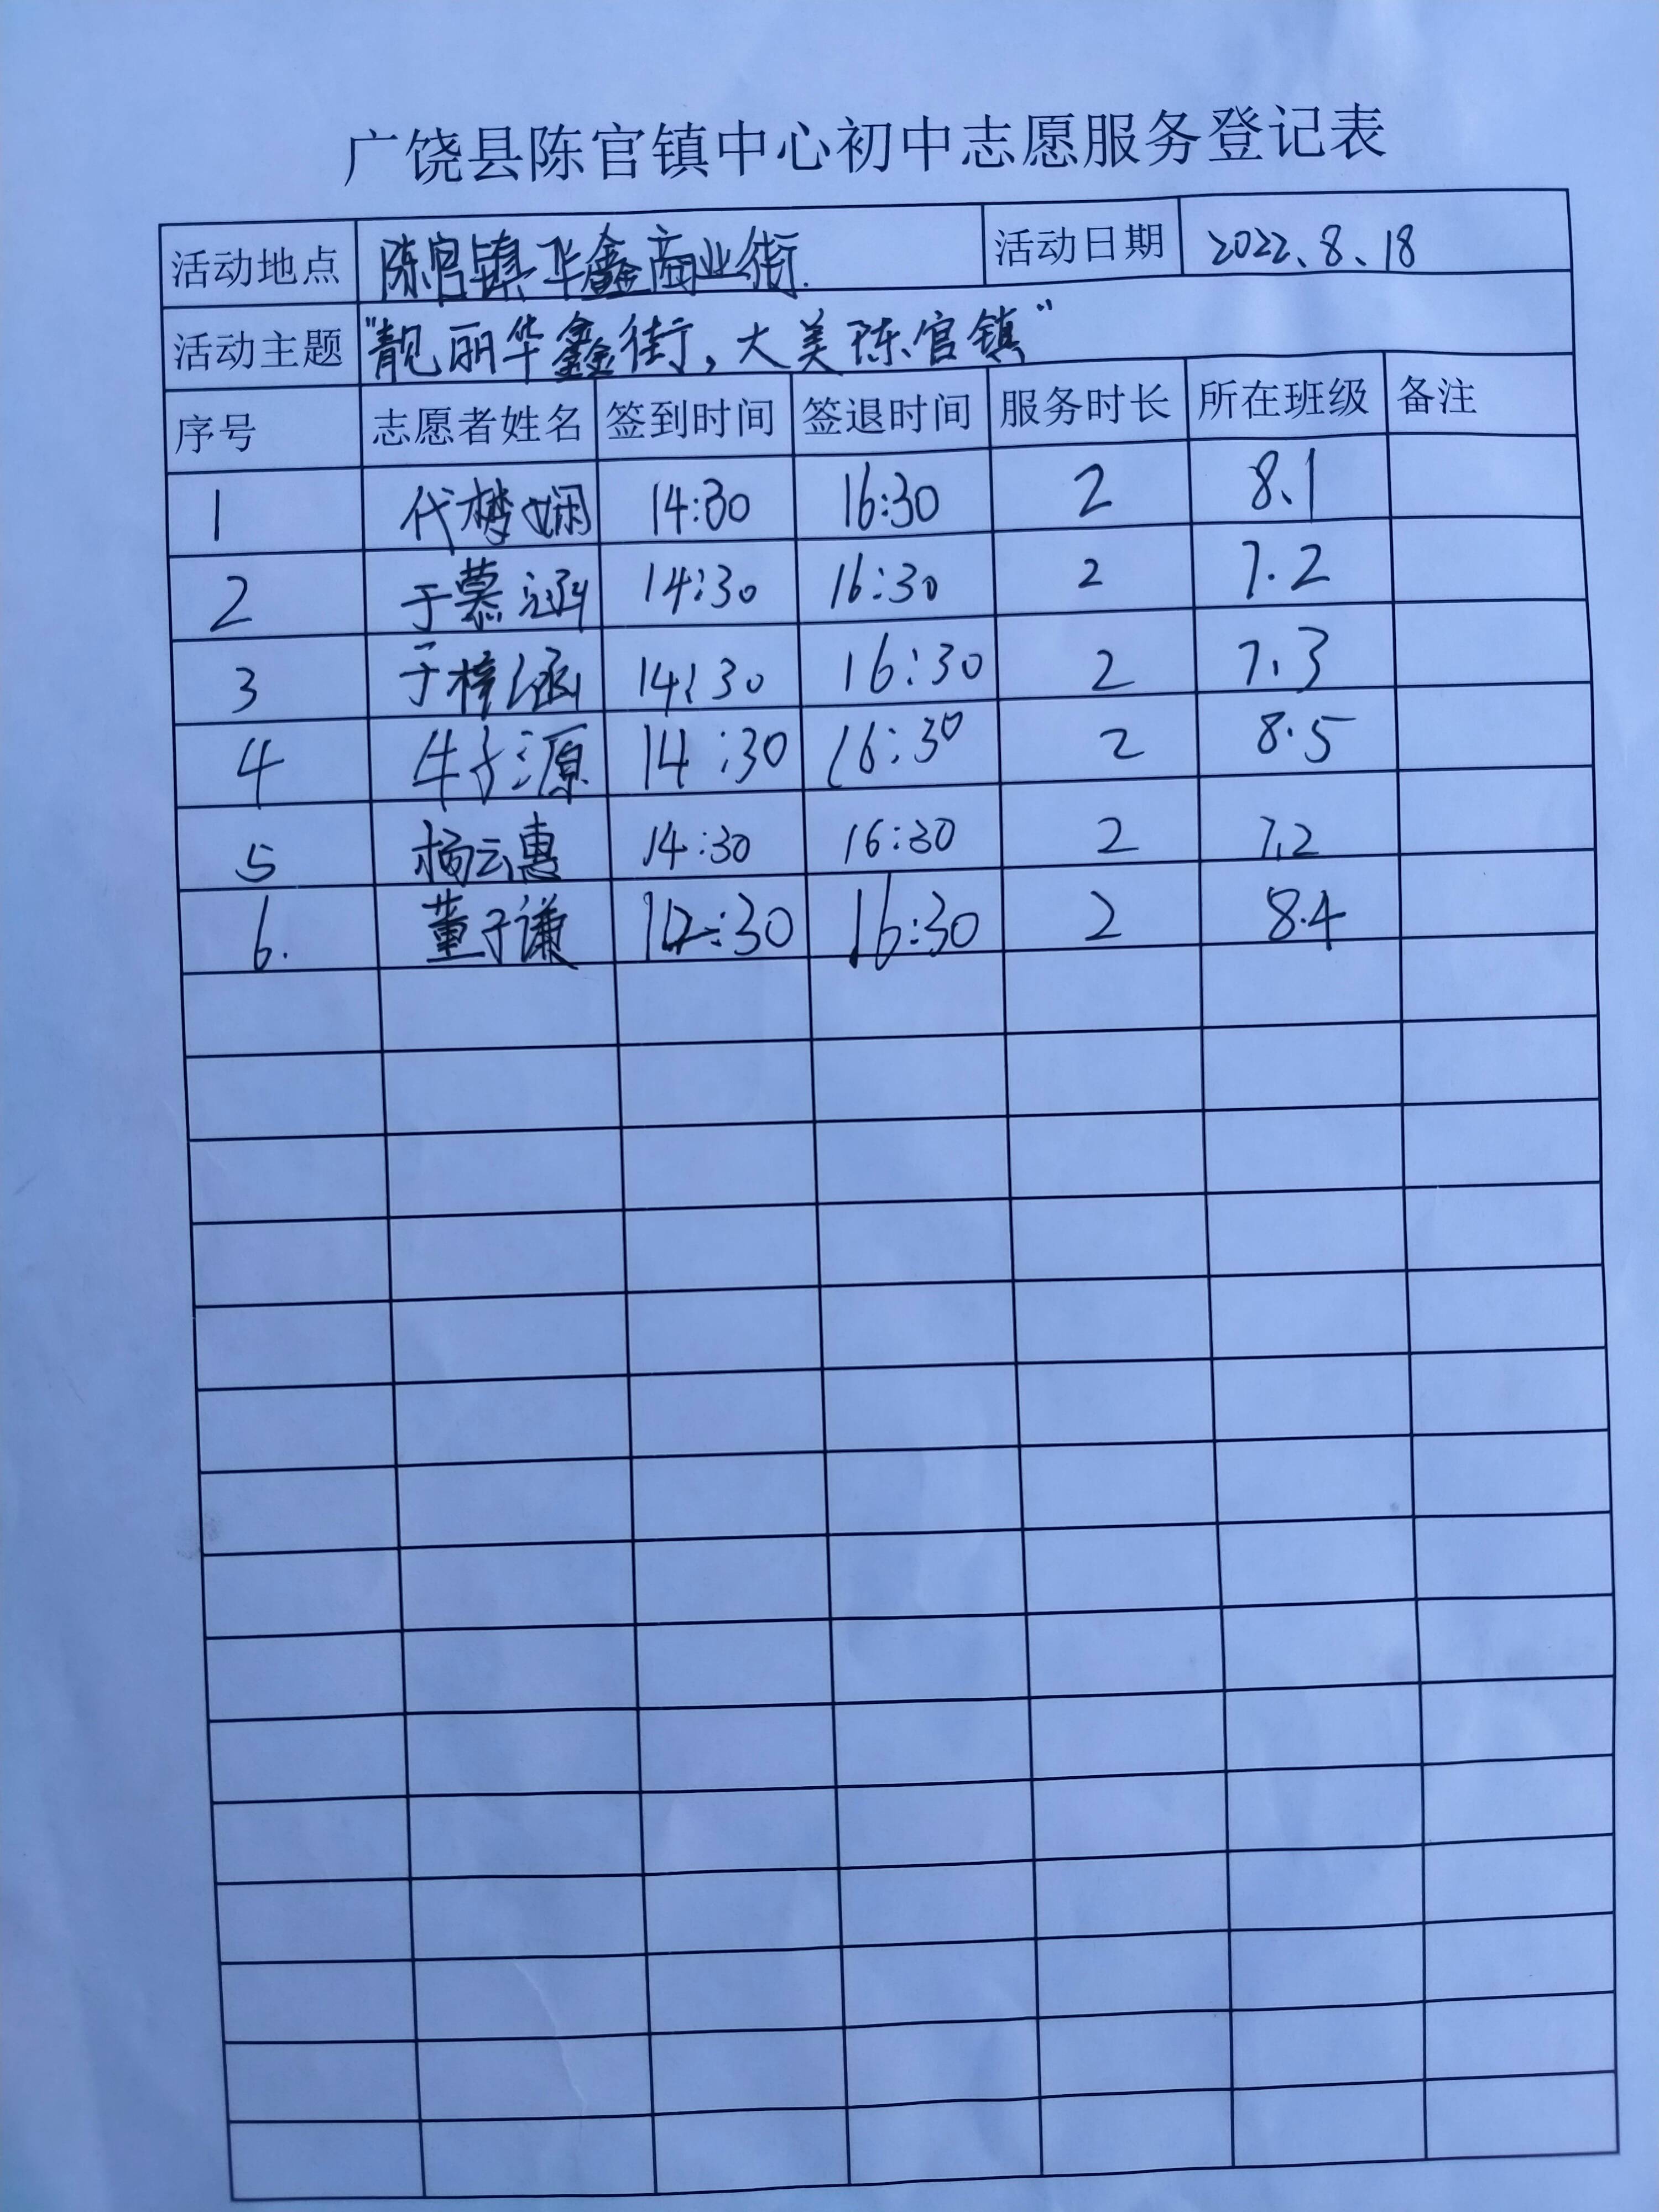 广饶县陈官镇中心初中志愿服务登记表
活动地点 陈官镇华鑫商业街. 活动日期 2022、8、18
活动主题 "靓丽华鑫街，大美陈官镇"
序号 志愿者姓名 签到时间 签退时间 服务时长 所在班级 备注
1 代梦娴 14:30 16:30 2 8.1
2 于慕涵 14:30 16:30 2 7.2
3 于梓涵 14:30 16:30 2 7.3
4 牛子源 14:30 16:30 2 8.5
5 杨云惠 14:30 16:30 2 7.2
6. 董子谦 14:30 16:30 2 8.4